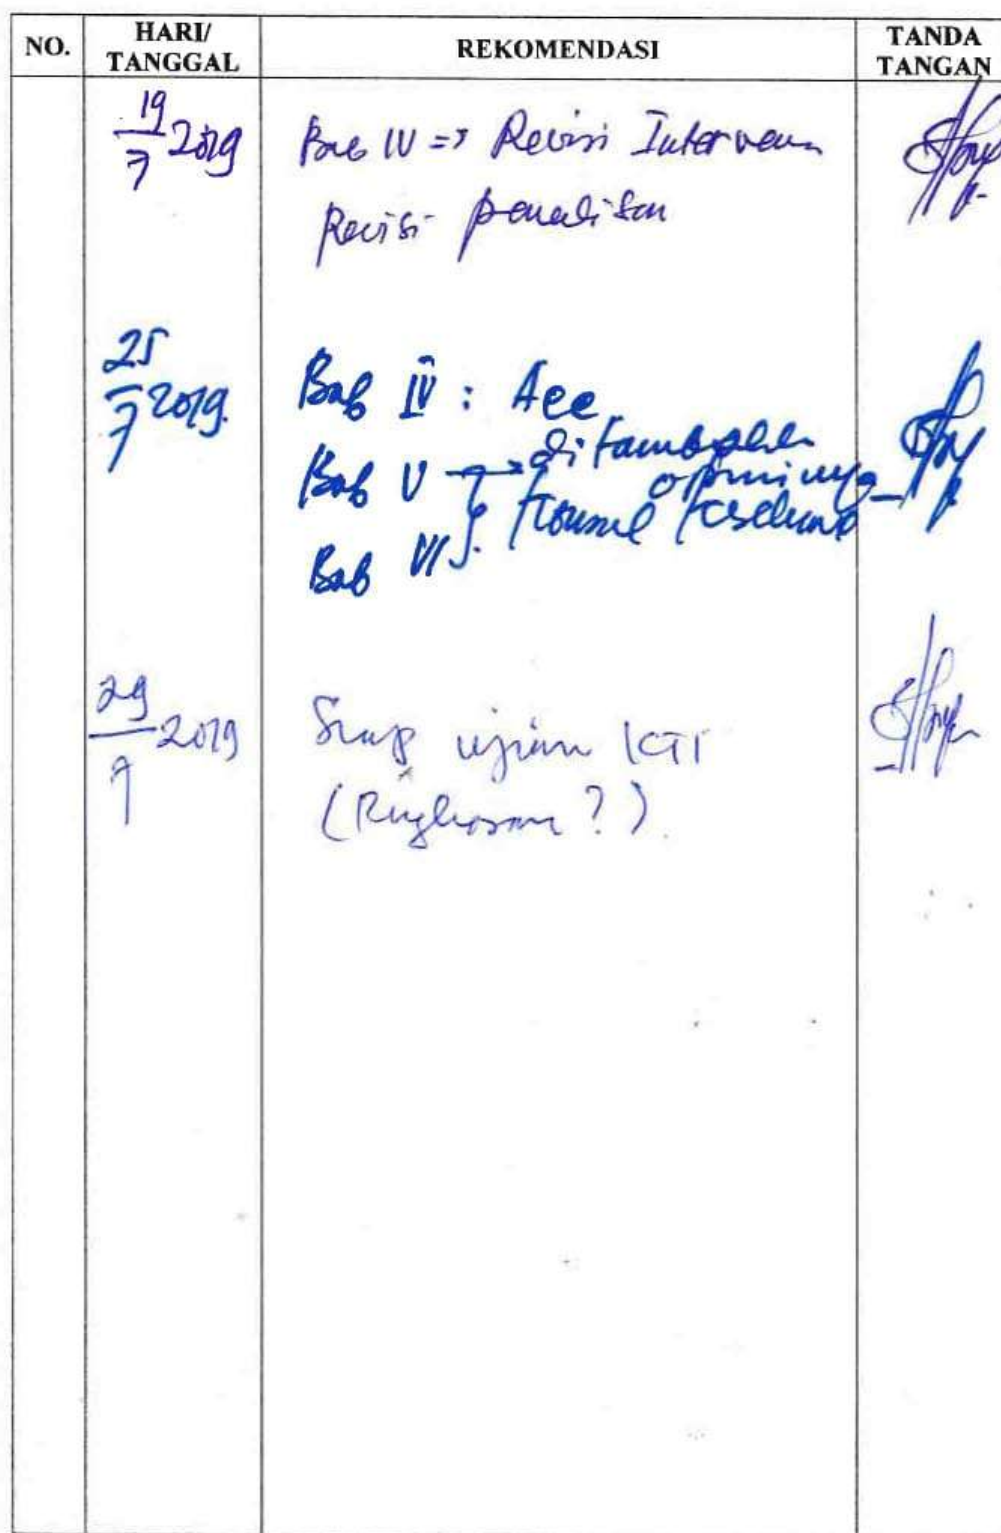 NO.
HARI/
TANGGAL
REKOMENDASI
TANDA
TANGAN
19/7 2019
Bab IV => Revisi Intervensi
Revisi penulisan
25/7 2019.
Bab IV : Acc
Bab V → ditambahkan
opininya
Bab VI }. Konsul
29/7 2019
Siap ujian KTI
(Ringkasan ? ? ).